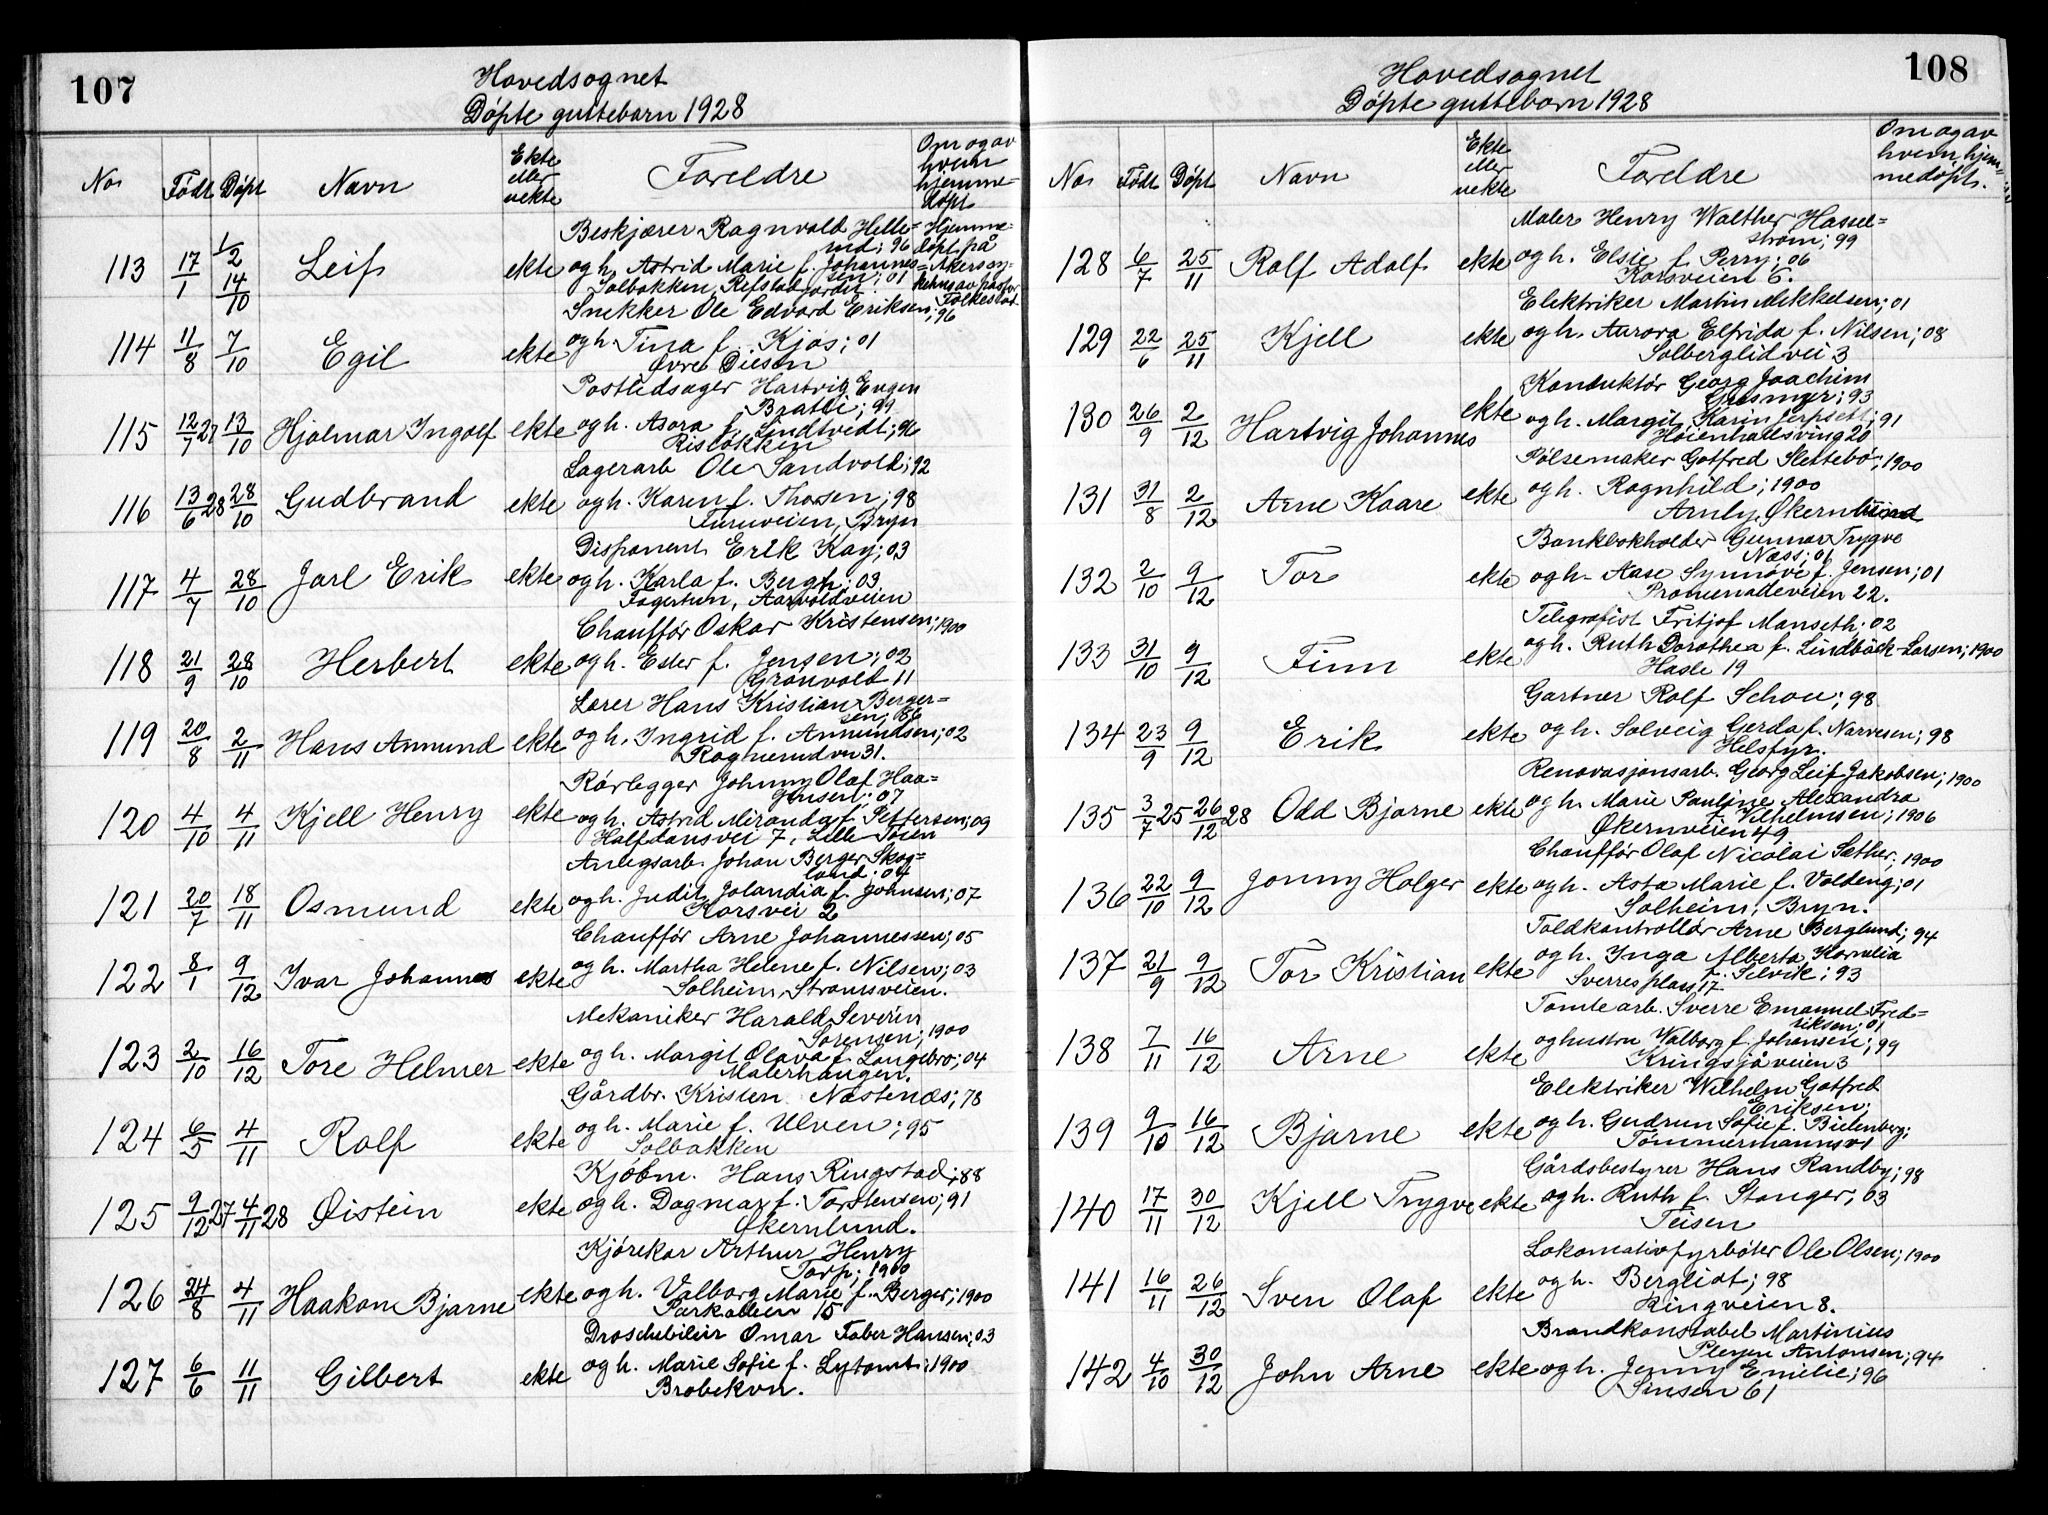 107
Hovedsognet
Döpte guttebarn 1928
No. Födt Döpt Navn Ekte eller uekte Foreldre Om og av hvem hjemme-döpt
Beskjærer Ragnvald Helle- Hjemme-
1/2 rud; 96 döpt på
113 17/1 14/10 Leif ekte og h. Astrid Marie f. Johannes- Akers sy-
sen; 01 kehus av pastor
Solbakken, Refstad jordet Folkestad.
Snekker Ole Edvard Eriksen; 96
114 11/8 7/10 Egil ekte og h. Tina f. Kjos; 01
Øvre Disen
Postledsager Hartvig Eugen
Bratli; 99
115 12/7 27 13/10 Hjalmar Ingolf ekte og h. Asora f. Lindtvedt; 96
Risløkken
Lagerarb Ole Sandvold; 92
116 13/6 28 28/10 Gudbrand ekte og h. Karen f. Thorsen; 98
Furuveien, Bryn
Disponent Erik Kay; 03
117 4/7 28/10 Jarl Erik ekte og h. Karla f. Bergh; 03
Fagertun, Aarvoldveien
Chaufför Oskar Kristensen; 1900
118 21/9 28/10 Herbert ekte og h. Ester f. Jensen; 02
Grønvold 11
Lærer Hans Kristian Berger-
sen; 86
119 20/8 2/11 Hans Amund ekte og h. Ingrid f. Amundsen; 02
Rognerud vn 31.
Rörlegger Johnny Olaf Haa-
gensen; 07
120 4/10 4/11 Kjell Henry ekte og h. Astrid Miranda f. Pettersen; 09
Halfdansvei 7, Lille Tøien
Anlegsarb. Johan Berger Skog-
land; 04
121 20/7 18/11 Osmund ekte og h. Judit Jolandia f. Johnsen; 07
Korsvei 2
Chaufför Arne Johannessen; 05
122 8/1 9/12 Ivar Johannes ekte og h. Martha Helene f. Nilsen; 03
Solheim, Strømsveien.
Mekaniker Harald Severin
Sørensen; 1900
123 2/10 16/12 Tore Helmer ekte og h. Margit Olava f. Langebro; 04
Malerhaugen.
Gårdbr. Kristen Næstenæs; 78
124 6/5 4/11 Rolf ekte og h. Marie f. Ulven; 95
Solbakken
Kjöbm. Hans Ringstad; 88
125 9/12 27 4/11 28 Øistein ekte og h. Dagmar f. Torstensen; 91
Økernlund.
Kjörekar Arthur Henry
Torp; 1900
126 24/8 4/11 Haakon Bjarne ekte og h. Valborg Marie f. Berger; 1900
Parkalleen 15
Droschebileier Omar Faber Hansen; 03
127 6/6 11/11 Gilbert ekte og h. Marie Sofie f. Lytomt; 1900
Brobekvn.
108
Hovedsognet
Döpte guttebarn 1928
No. Födt Döpt Navn Ekte eller uekte Foreldre Om og av hvem hjem-medöpt.
Maler Henry Walther Hassel-
ström; 99
128 6/7 25/11 Rolf Adolf ekte og h. Elsie f. Perry; 06
Korsveien 6.
Elektriker Martin Mikkelsen; 01
129 22/6 25/11 Kjell ekte og h. Aurora Elfrida f. Nilsen; 08
Solberglidvei 3
Konduktör Georg Joachim
Giesmyr; 93
130 26/9 2/12 Hartvig Johannes ekte og h. Margit Karin Jerpsett; 91
Høienhallsving 20
Pölsemaker Gotfred Slettebö; 1900
131 31/8 2/12 Arne Kaare ekte og h. Ragnhild; 1900
Arnly, Økern
Bankbokholder Gunnar Trygve
Næss; 01
132 2/10 9/12 Tor ekte og h. Aase Synnöve f. Jensen; 01
Promenadeveien 22.
Telegrafist Fritjof Manseth; 02
133 31/10 9/12 Finn ekte og h. Ruth Dorothea f. Lindbäck-Larsen; 1900
Hasle 19
Gartner Rolf Schou; 98
134 23/9 9/12 Erik ekte og h. Solveig Gerda f. Narvesen; 98
Helsfyr.
Renovasjonsarb. Georg Leif Jakobsen; 1900
135 3/7 25 26/12 28 Odd Bjarne ekte og h. Marie Pauline Alexandra
f. Vilhelmsen; 1906
Økernveien 49
Chaufför Olaf Nicolai Sæther; 1900
136 22/10 9/12 Jonny Holger ekte og h. Asta Marie f. Voldeng; 01
Solheim, Bryn.
Toldkontrollör Arne Berglund; 94
137 21/9 9/12 Tor Kristian ekte og h. Inga Alberta Kornelia
f. Selvik; 93
Sverres plass 17
Tomtearb. Sverre Emanuel Fred-
riksen; 01
138 7/11 16/12 Arne ekte og hustru Valborg f. Johansen; 99
Kringsjåveien 3
Elektriker Wilhelm Gotfred
Eriksen;
139 9/10 16/12 Bjarne ekte og h. Gudrun Sofie f. Bielenberg;
Tømmermannsv 1
Gårdsbestyrer Hans Randby; 98
140 17/11 30/12 Kjell Trygve ekte og h. Ruth f. Stanger; 03
Teisen
Lokomotivfyrböter Ole Olsen; 1900
141 16/11 26/12 Sven Olaf ekte og h. Bergliot; 98
Ringveien 8.
Brandkonstabel Martinius
Antonsen; 94
142 4/10 30/12 John Arne ekte og h. Jenny Emilie; 96
Sinsen 61